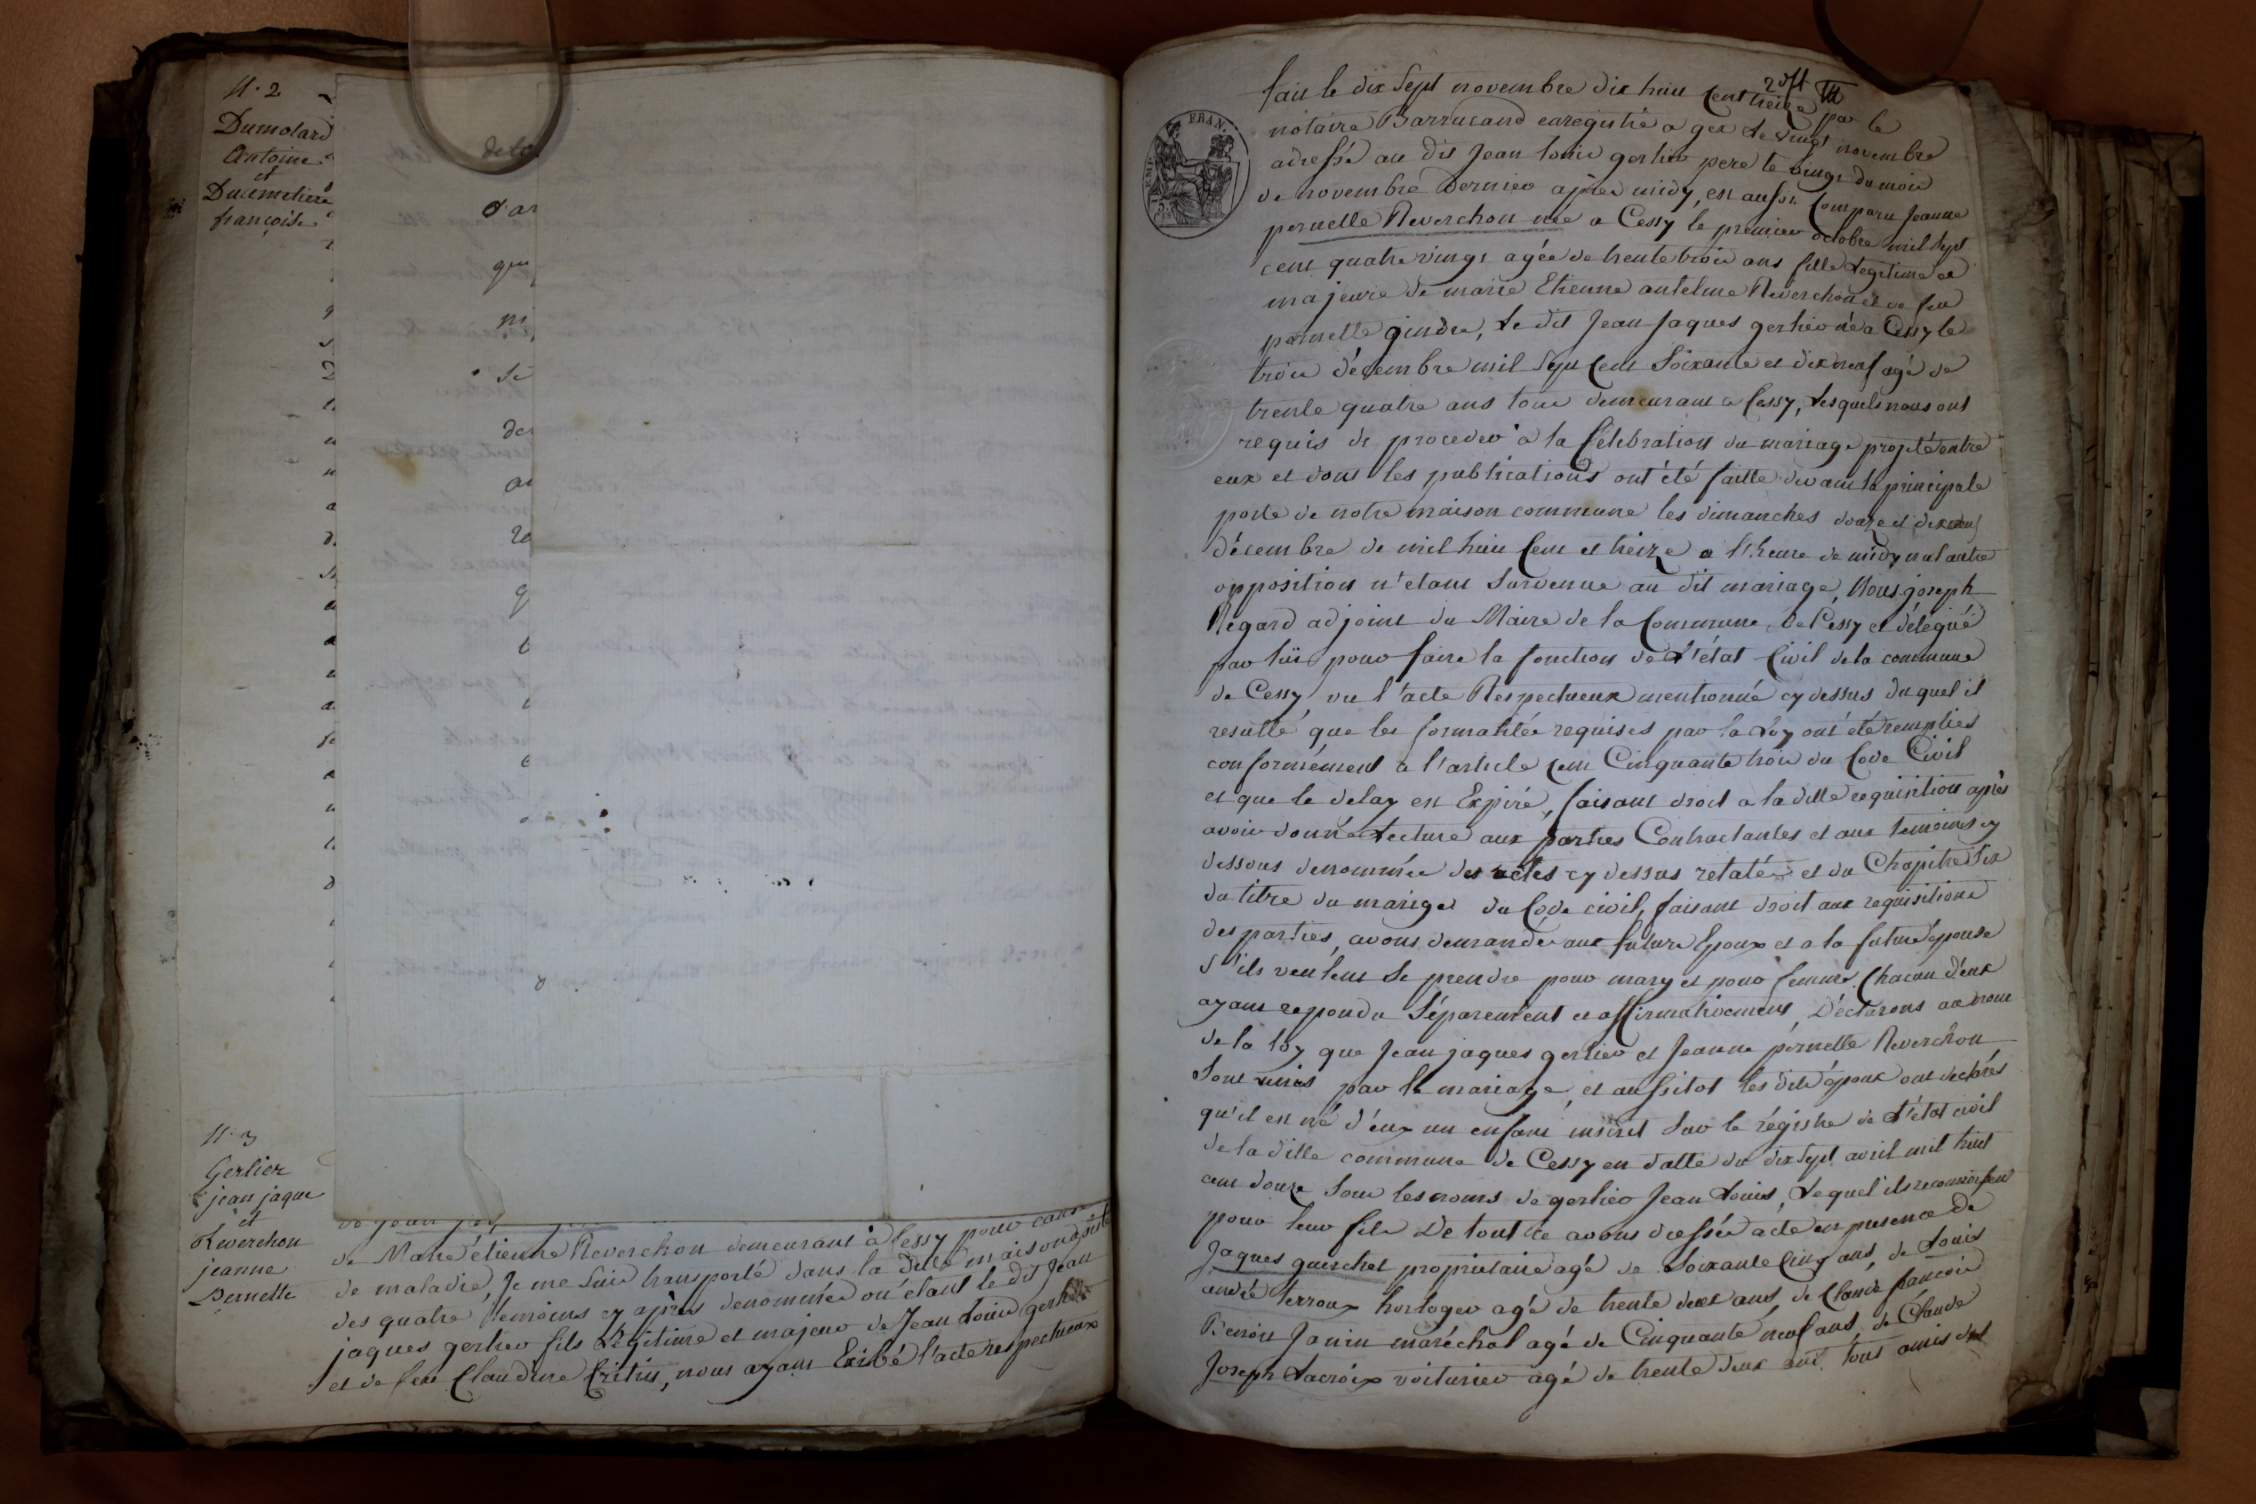 N. 2
Dumolard
Antoine
et
Ducimetiere
françoise
N. 3
Gerlier
jean jaque
et
Reverchon
jeanne
Pernette
de Marie étienne Reverchon demeurant à Cessy pour cause
de maladie, je me suis transporté dans la dite maison assisté
des quatre temoins cy après denommés où étant le dit Jean
jaques gerlier fils Légitime et majeur de Jean Louis gerlier
et de feue Claudine Critin, nous ayant Exibé l'acte respectueux
fait le dix Sept novembre dix huit Cent treize par le
notaire Barrucand enregistré a gex Le vingt novembre
adressé au dit Jean Louis gerlier pere le vingt du mois
de novembre dernier après midy, est aussi Comparu Jeanne
pernette Reverchon née a Cessy le premier octobre mil sept
cent quatre vingt agée de trente trois ans fille Legitime et
majeure de marie Etienne antelme Reverchon et de feu
pernette gindre, Le dit Jean Jaques gerlier né a Cessy le
trois décembre mil Sept Cent Soixante et dix neuf agé de
trente quatre ans tous demeurant a Cessy, Lesquels nous ont
requis de proceder a la Célébration du mariage projeté entre
eux et dont les publications ont été faitte devant la principale
porte de notre maison commune les dimanches douze et dix neuf
décembre de mil huit Cent et treize a l'heure de midy nul autre
opposition n'etant Survenue au dit mariage, Nous joseph
Régard adjoint du Maire de la Commune de Cessy et délégué
par lui pour faire la fonction de L'état Civil de la commune
de Cessy, vu l'acte Respectueux mentionné cy dessus duquel il
resulte que les formalités requises par la Loy ont été remplies
conformément a l'article Cent Cinquante trois du Code Civil
et que le delay est Expiré, faisant droit a la ditte requisition après
avoir donné Lecture aux parties Contractantes et aux temoins cy
dessous denommés des actes cy dessus relatés et du Chapitre Six
du titre du mariage du Code civil, faisant droit aux requisitions
des parties, avons demandé aux future Epoux et a la future épouse
s'ils veulent Se prendre pour mary et pour femme, Chacun d'eux
ayant repondu Séparement et affirmativement, Déclarons au nom
de la loy que Jean jaques gerlier et Jeanne pernette Reverchon
Sont unis par le mariage, et aussitot les dits époux ont declarés
qu'il est né d'eux un enfant inscrit Sur le régistre de L'état civil
de la ditte commune de Cessy en datte du dix Sept avril mil huit
cent douze Sous les noms de gerlier Jean Louis, Lequel ils reconnoissent
pour leur fils De tout ce avons dressée acte en presence de
Jaques guerchet propriétaire agé de Soixante Cinq ans, de Louis
andré terroux horloger agé de trente deux ans, de Claude françois
Benoit Janin maréchal agé de Cinquante neuf ans, de Claude
Joseph Lacroix voiturier agé de trente deux ans, tous amis des